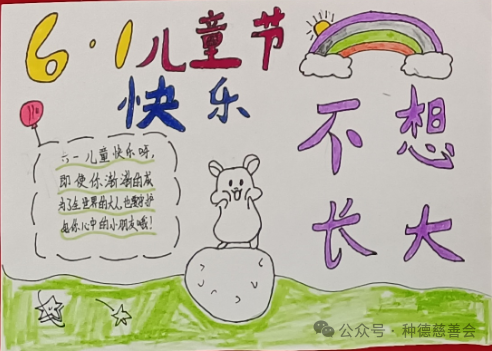 6·1儿童节
快乐
不想
长大
六一儿童快乐呀,
即使你渐渐的成
为了这世界的大人也要守护
好你心中的小朋友哦!
公众号·种德慈善会